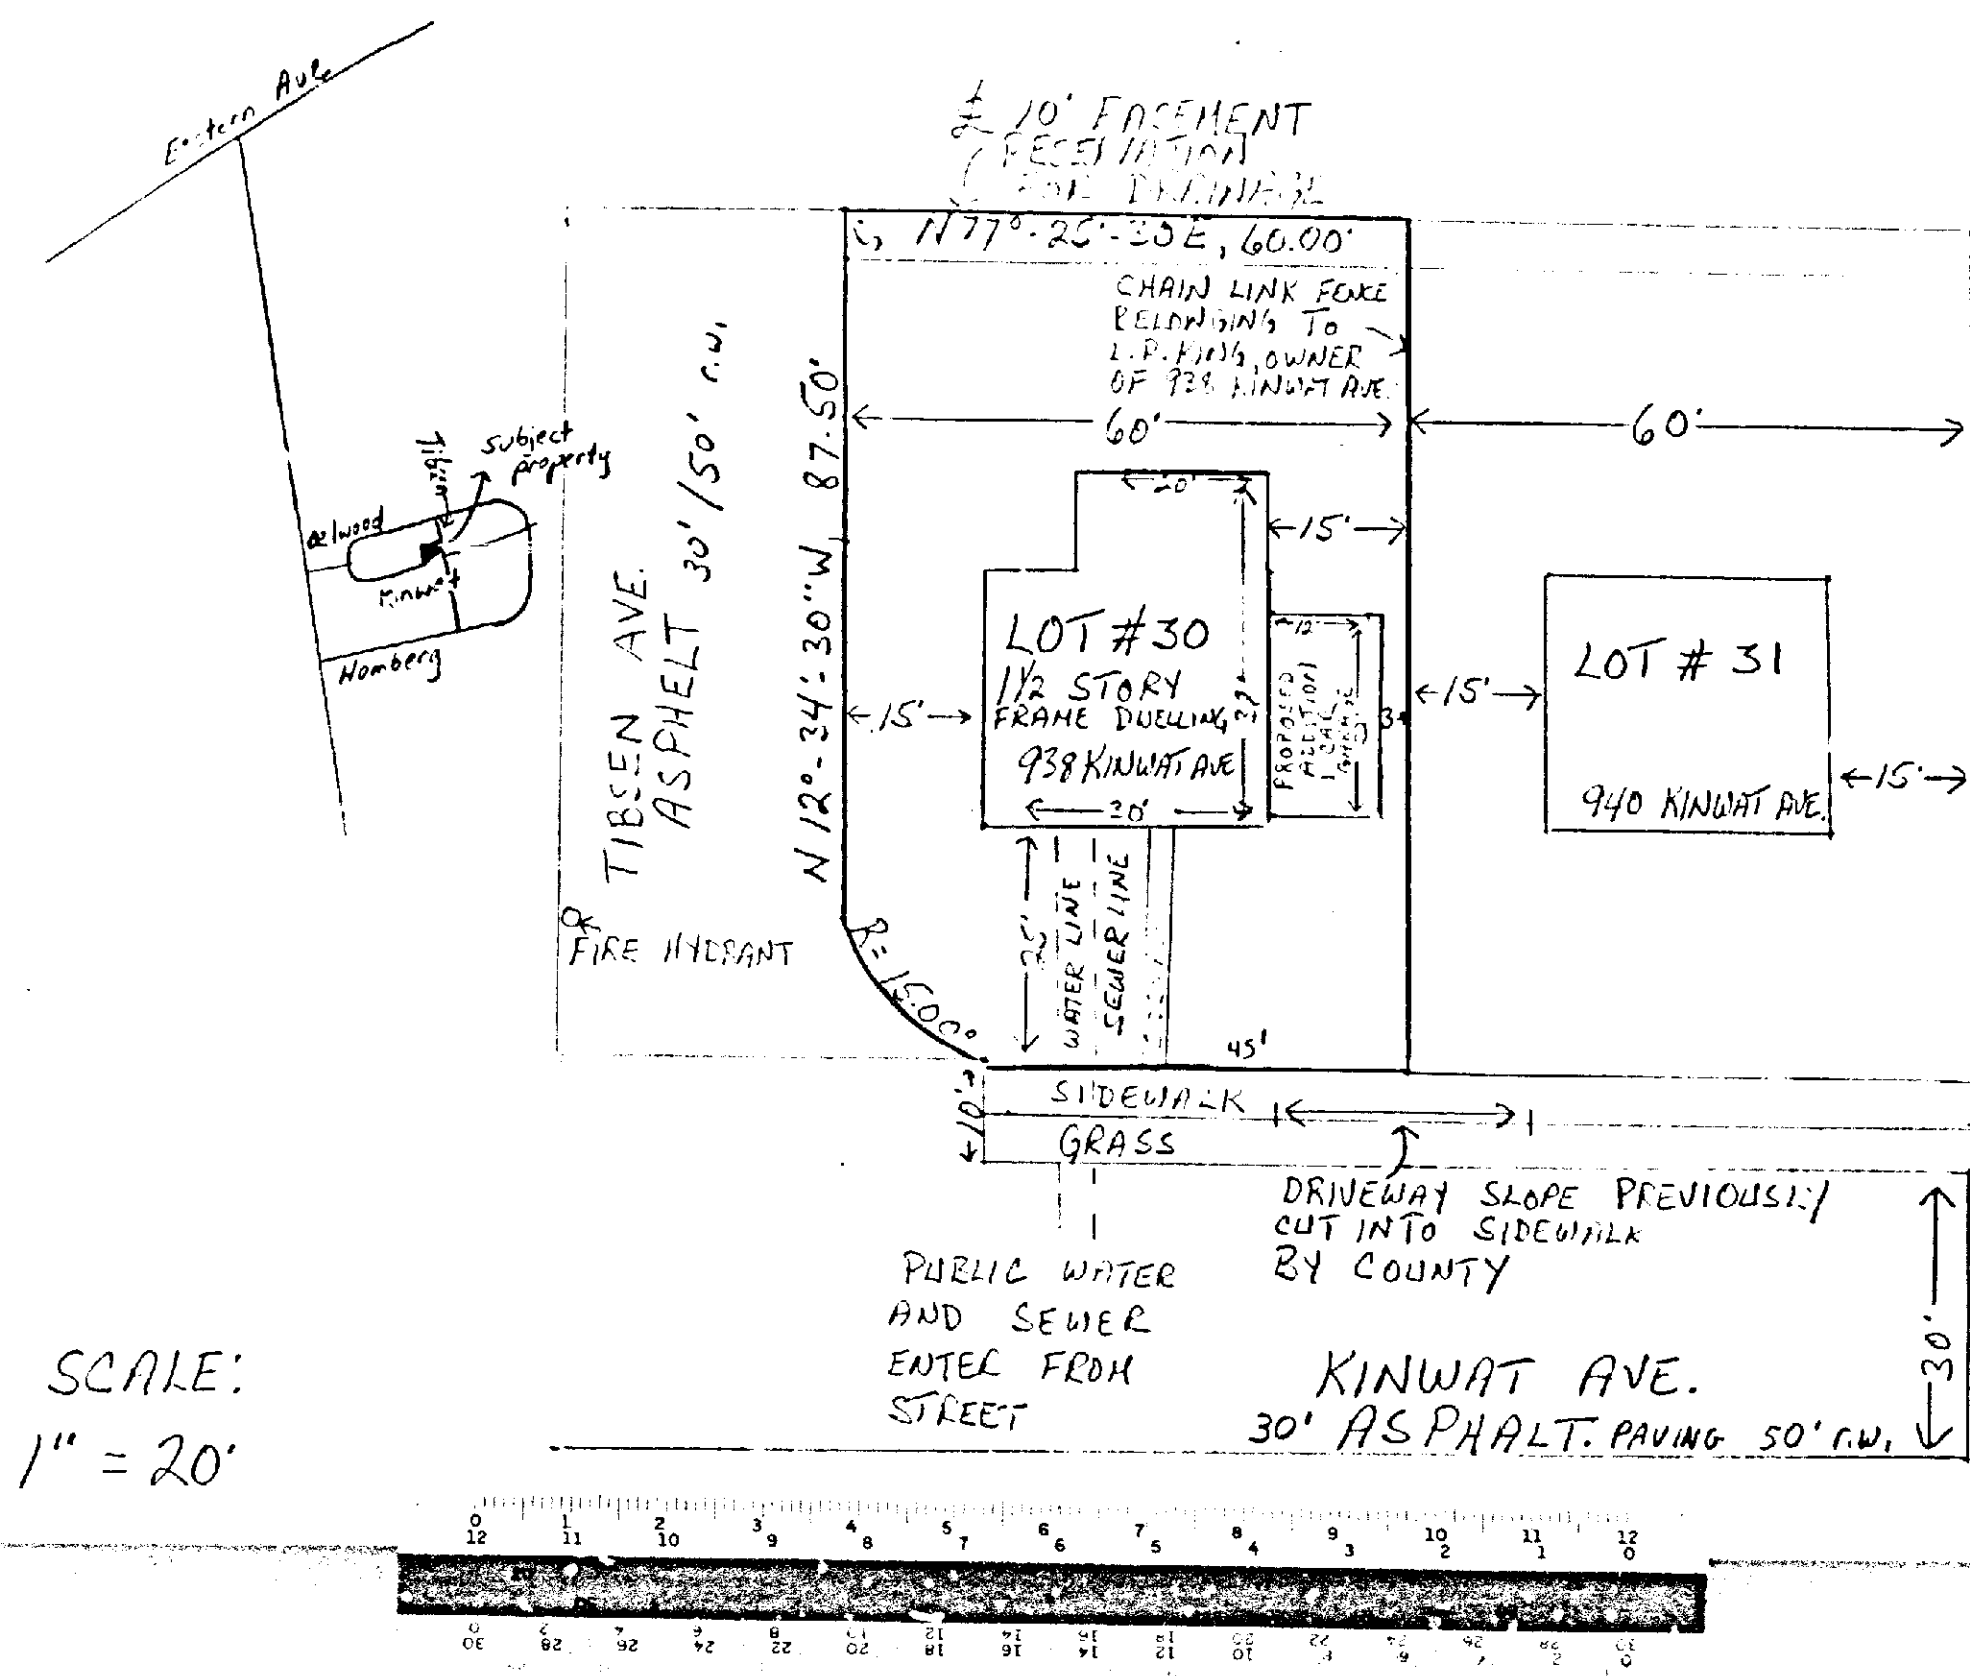 Eastern Ave
± 10' EASEMENT
RESERVATION
FOR DRAINAGE
N77°-25'-30E, 60.00'
CHAIN LINK FENCE
BELONGING TO
KING, OWNER
OF 938 KINWAT AVE.
60'
60'
subject
property
Kinwat
Homberg
TIBSEN AVE.
ASPHELT 30'/50' r.w.
N 12°-34'-30"W, 87.50'
20'
15'
LOT #30
1 1/2 STORY
FRAME DWELLING
938 KINWAT AVE
30'
15'
12
PROPOSED
ADDITION
1 CAR
GARAGE
3
15'
LOT # 31
940 KINWAT AVE.
15'
FIRE HYDRANT
R= 15.00°
25'
WATER LINE
SEWER LINE
45'
10'
SIDEWALK
GRASS
DRIVEWAY SLOPE PREVIOUSLY
CUT INTO SIDEWALK
BY COUNTY
PUBLIC WATER
AND SEWER
ENTER FROM
STREET
KINWAT AVE.
30' ASPHALT. PAVING 50' r.w.
30'
SCALE:
1" = 20'
0 1 2 3 4 5 6 7 8 9 10 11 12
12 11 10 9 8 7 6 5 4 3 2 1 0
30 28 26 24 22 20 18 16 14 12 10
0 2 4 6 8 10 12 14 16 18 20 22 24 26 28 30